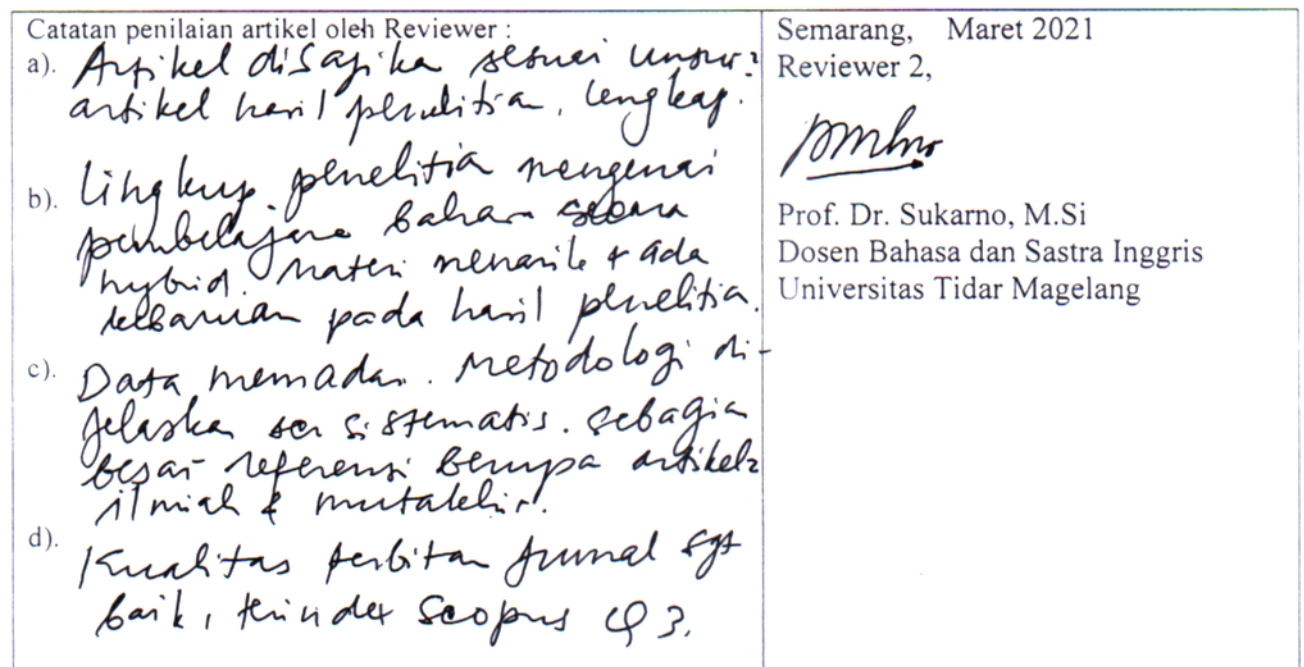 Catatan penilaian artikel oleh Reviewer :
a). Artikel disajika sesuai unsur2
artikel hasil penelitian, lengkap.
b). Lingkup penelitia mengenai
pembelajara bahasa secara
hybrid. Materi menarik + ada
kebaruan pada hasil penelitia.
c). Data memadai. Metodologi di-
jelaska sistematis. sebagia
besar referensi berupa artikel2
ilmiah & mutakhir.
d). Kualitas terbitan jurnal sgt
baik, terindex Scopus Q3.
Semarang, Maret 2021
Reviewer 2,
Prof. Dr. Sukarno, M.Si
Dosen Bahasa dan Sastra Inggris
Universitas Tidar Magelang